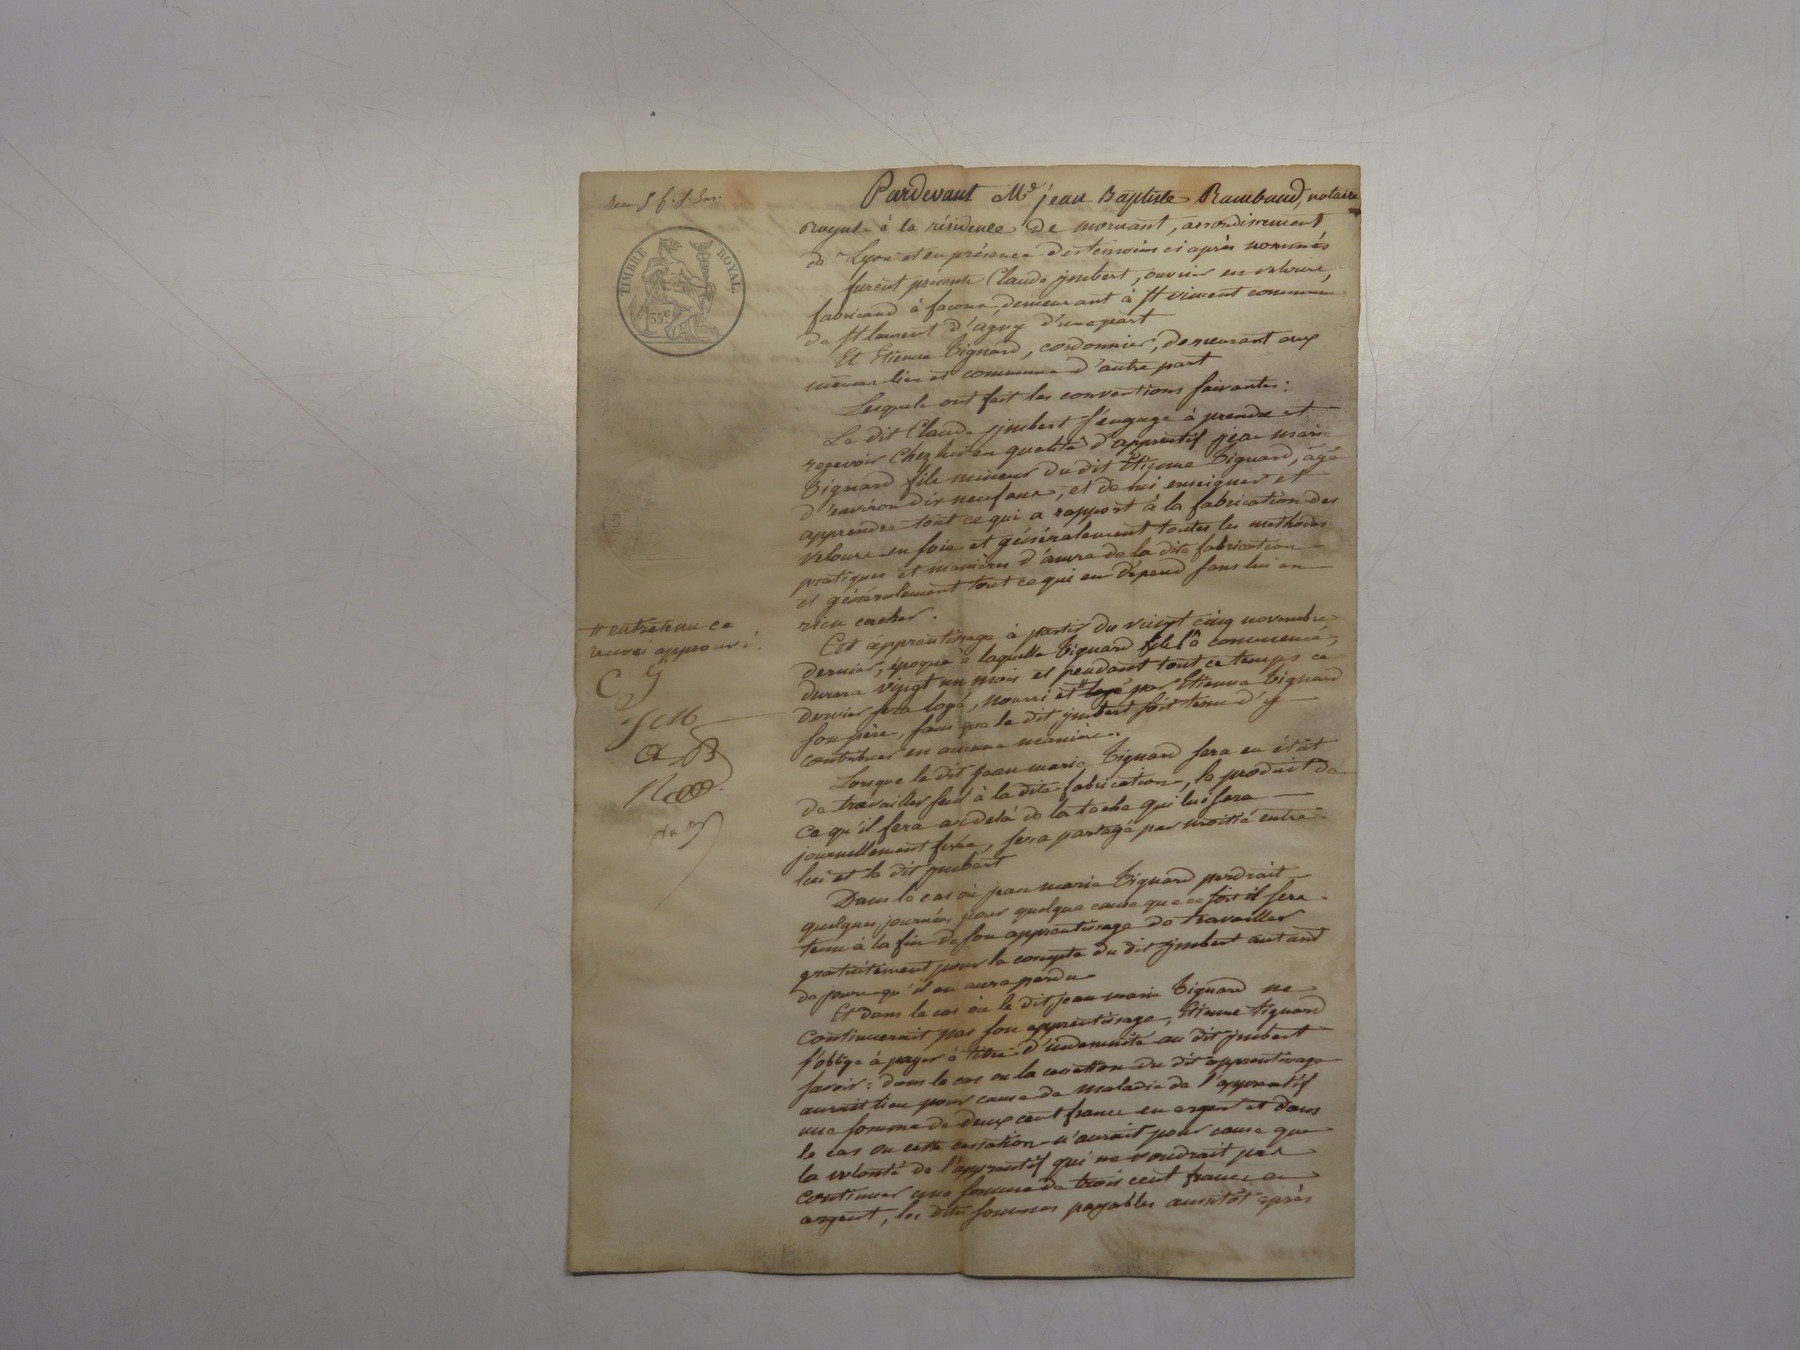 TIMBRE ROYAL.
35c.
Pardevant Me jean Baptiste Rambaud, notaire
royal à la résidence De mornant, arrondissement
de Lyon et en présence des temoins ci après nommés
furent présents Claude jmbert, ouvrier en velours,
fabricand à façons, demeurant à St vincent commune
De St laurent d'agny d'une part
Et Etienne Tignard, cordonnier, demeurant aux
mêmes lieu et commune d'autre part
Lesquels ont fait les conventions suivantes:
Le dit Claude jmbert s'engage à prendre et
recevoir chez lui en qualité d'apprentif jean marie
Tignard fils mineur du dit Etienne Tignard, âgé
d'environ dix neuf ans, et de lui enseigner et
apprendre tout ce qui a rapport à la fabrication des
velours en soie et généralement toutes les methodes
pratiques et manières d'œuvre de la dite fabrication
et généralement tout ce qui en dépend sans lui en
rien cacher.
Cet apprentissage à partir du vingt cinq novembre
dernier, époque à laquelle Tignard fils l'a commencé,
durera vingt un mois et pendant tout ce temps ce
dernier sera logé, nourri et # logé par Etienne Tignard
son père, sans que le dit jmbert soit tenu d'y
contribuer en aucune manière.
# entretenu ce
renvoi approuvé.
C J
Lorsque le dit jean marie Tignard sera en état
de travailler seul à la dite fabrication, le produit de
ce qu'il fera au delà de la tache qui lui sera
journellement fixée, sera partagé par moitié entre
lui et le dit jmbert
Dans le cas où jean marie Tignard perdrait
quelques journées pour quelque cause que ce soit il sera
tenu à la fin de son apprentissage de travailler
gratuitement pour le compte du dit jmbert autant
de jours qu'il en aura perdu
Et dans le cas où le dit jean marie Tignard ne
continuerait pas son apprentissage, Etienne tignard
s'oblige à payer à titre d'indemnité au dit jmbert
savoir: dans le cas ou la cessation du dit apprentissage
aurait lieu pour cause de maladie de l'apprentif
une somme de deux cent francs en argent et dans
le cas ou cette cessation n'aurait pour cause que
la volonté de l'apprentif qui ne voudrait pas
continuer une somme de trois cent francs en
argent, les dites sommes payables aussitôt après